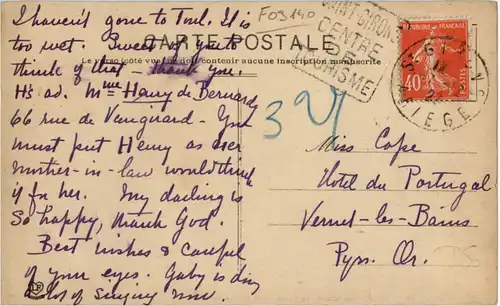 I haven't gone to Toul. It is
too wet. Sweet of you to
think of that – thank you.
H's ad. Mme Henry de Bernardy
66 rue de
must put Henry as her
mother-in-law would think
it for her. My darling is
so happy, thank God.
Best wishes & careful
of your eyes. Gaby is doing
a lot of singing now.
CARTE POSTALE
Le verso (côté vue) doit contenir aucune inscription manuscrite
F03140
SAINT-GIRONS
CENTRE
DE
TOURISME
ST GIRONS
ARIEGE
40c
POSTES
32
Miss Cope
Hotel du Portugal
Vernet-les-Bains
Pyr. Or.